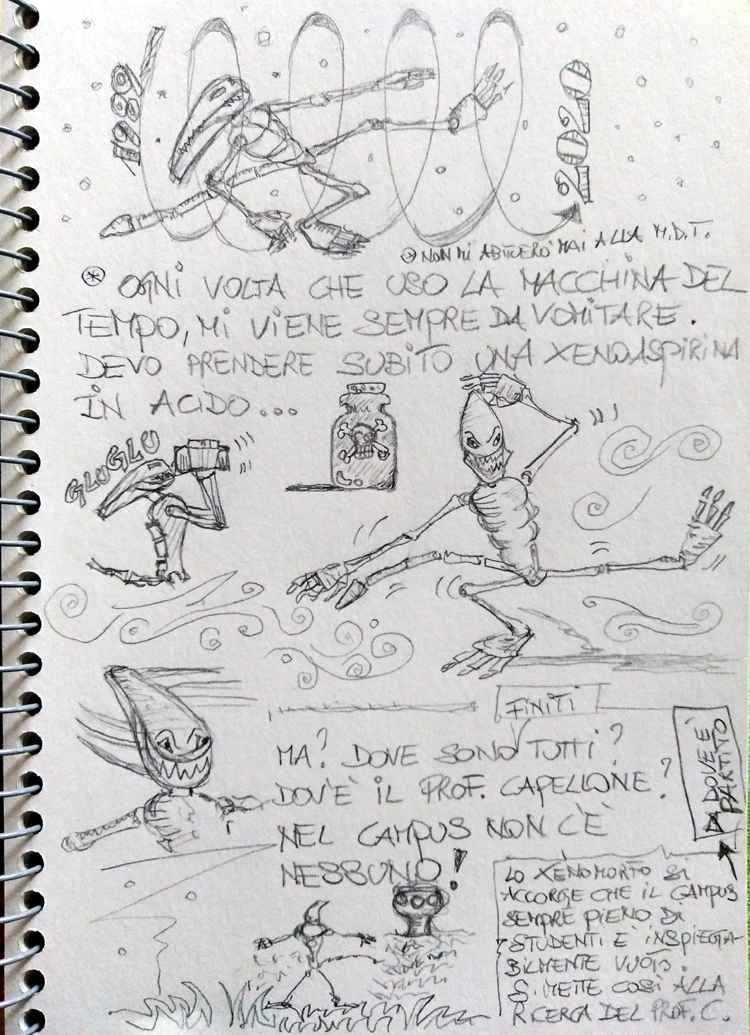 1989
2020
* NON MI ABITUERÒ MAI ALLA M.D.T.
* OGNI VOLTA CHE USO LA MACCHINA DEL
TEMPO, MI VIENE SEMPRE DA VOMITARE.
DEVO PRENDERE SUBITO UNA XENOASPIRINA
IN ACIDO...
GLUGLU
FINITI
MA? DOVE SONO TUTTI?
DOV'È IL PROF. CAPELLONE?
NEL CAMPUS NON C'È
NESSUNO!
DOVE È
PARTITO
LO XENOMORFO SI
ACCORGE CHE IL CAMPUS
SEMPRE PIENO DI
STUDENTI E' INSPIEGA
BILMENTE VUOTO.
SI METTE COSÌ ALLA
RICERCA DEL PROF. C.